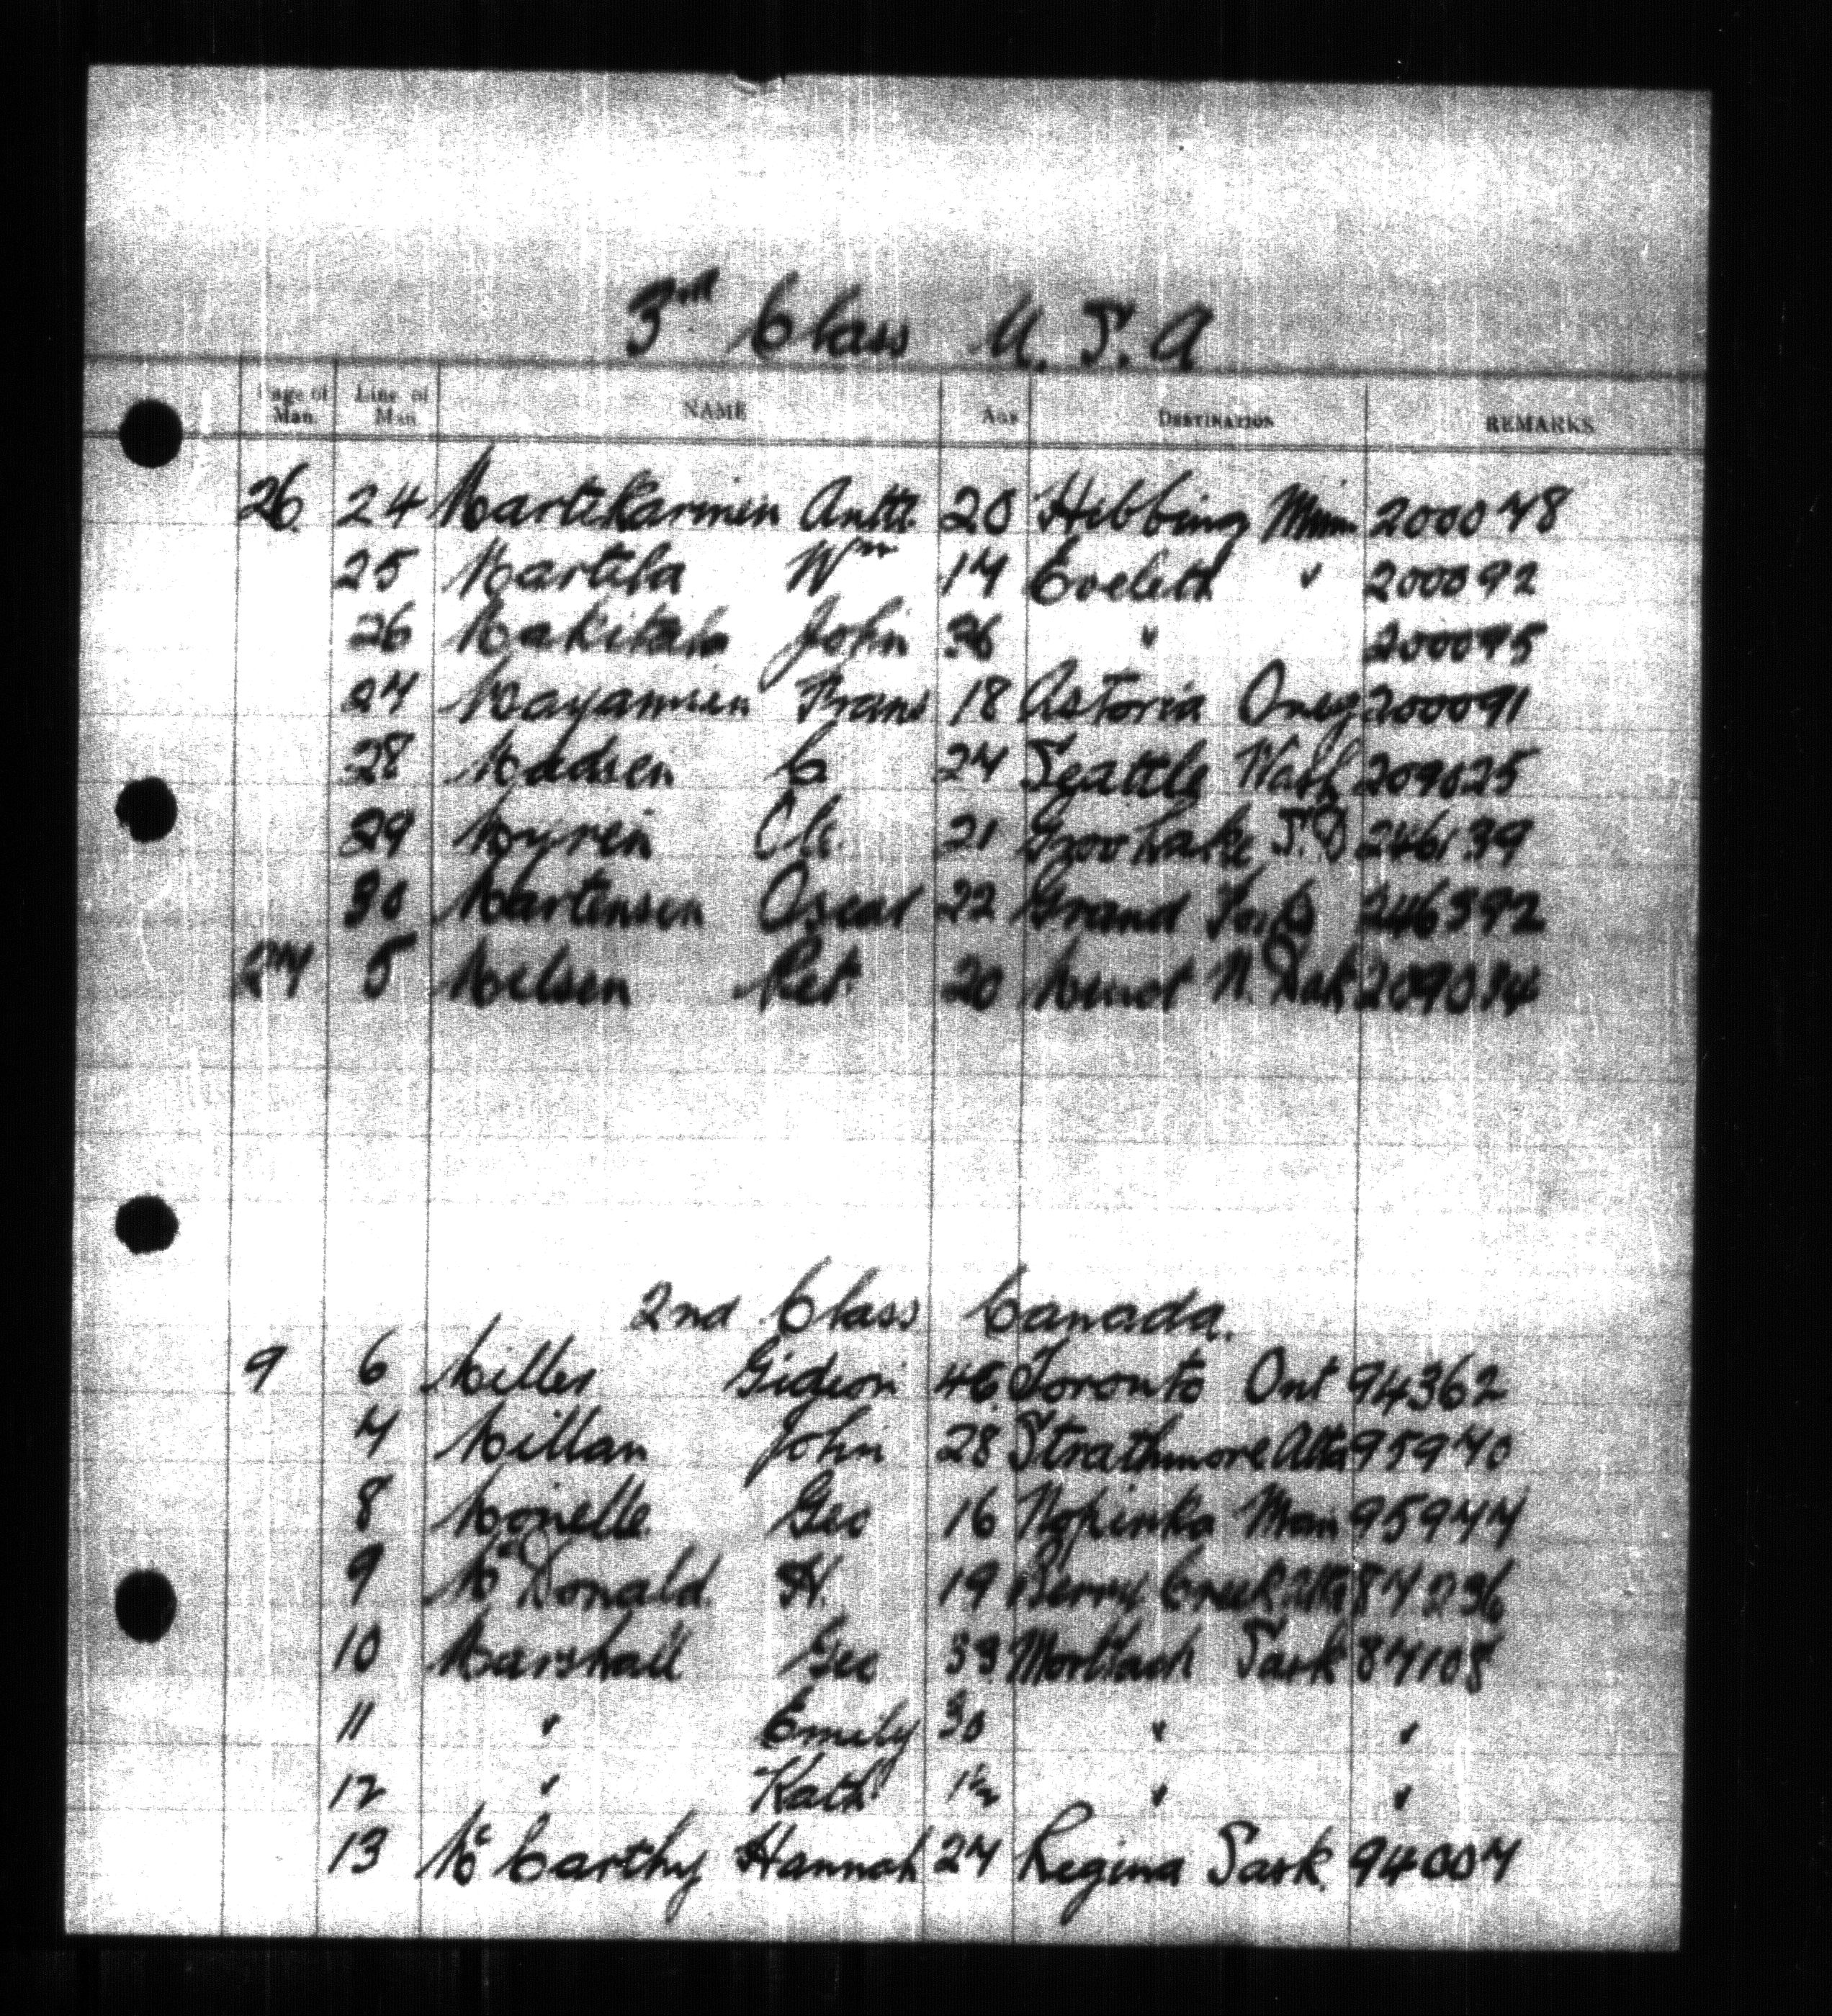 3rd Class U.S.A
Page of Man. Line of Man NAME Age DESTINATION REMARKS
26. 24 Martikarinen Antti 20 Hibbing Minn 200078
25 Martila Wm 17 Eveleth " 200092
26 Makitalo John 36 " 200095
27 Mayannen Frans 18 Astoria Oreg 200091
28 Madsen C 27 Seattle Wash 209025
29 Myren Ole. 21 Lake S.D 246139
30 Martensen Oscar 22 Grand Forks 246392
27 5 Melsen Pet 20 Minot N. Dak 209034
2nd Class Canada.
9 6 Miller Gideon 46 Toronto Ont 94362
7 Millan John 28 Strathmore Alta 95970
8 Geo 16 Napinka Man 95977
9 McDonald H. 19 Berry Creek Alta 87236
10 Marshall Geo 33 Mortlach Sask 87108
11 " Emily 30 " "
12 " Kath 1½ " "
13 McCarthy Hannah 27 Regina Sask. 94007